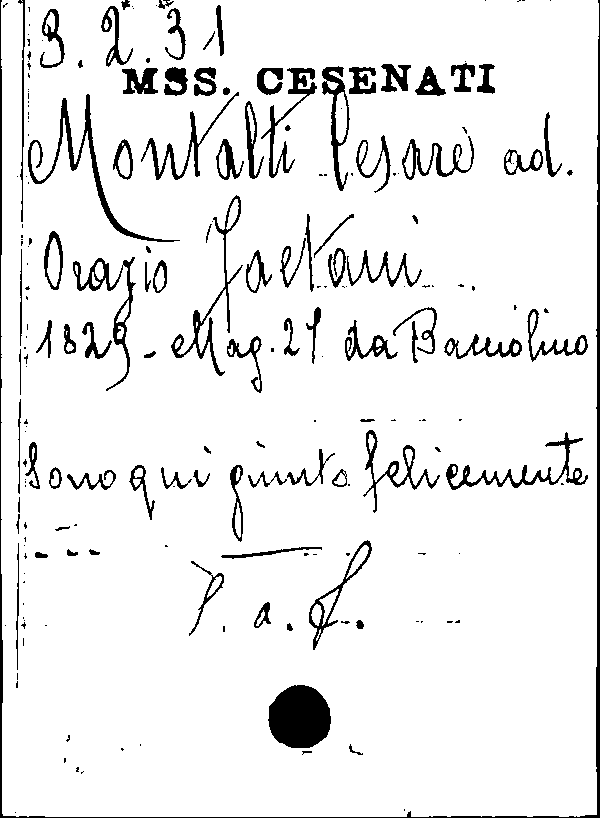 3.2.31
MSS. CESENATI
Montalti Cesare ad.
Orazio Gaetani
1829 - Mag. 21 da Bacciolino
Sono qui giunto felicemente
---
l. a. f.